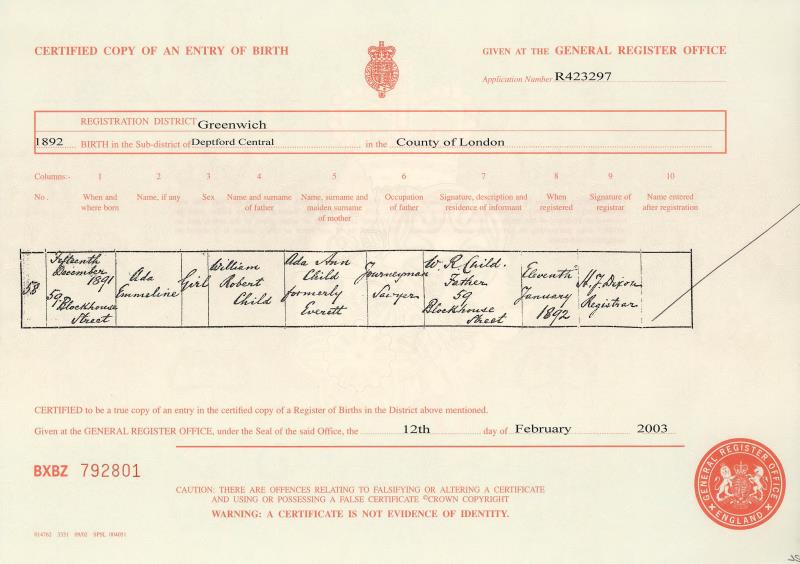 CERTIFIED COPY OF AN ENTRY OF BIRTH
GIVEN AT THE GENERAL REGISTER OFFICE
Application Number R423297
REGISTRATION DISTRICT Greenwich
1892 BIRTH in the Sub-district of Deptford Central in the County of London
Columns:- 1 2 3 4 5 6 7 8 9 10
No. When and where born Name, if any Sex Name and surname of father Name, surname and maiden surname of mother Occupation of father Signature, description and residence of informant When registered Signature of registrar Name entered after registration
58
Fifteenth
December
1891
59
Blockhouse
Street
Ada
Emmeline
Girl
William
Robert
Child
Ada Ann
Child
formerly
Everett
Journeyman
Sawyer
W. R. Child.
Father
59
Blockhouse
Street
Eleventh
January
1892
H. J. Dixon
Registrar
CERTIFIED to be a true copy of an entry in the certified copy of a Register of Births in the District above mentioned.
Given at the GENERAL REGISTER OFFICE, under the Seal of the said Office, the 12th day of February 2003
BXBZ 792801
CAUTION: THERE ARE OFFENCES RELATING TO FALSIFYING OR ALTERING A CERTIFICATE
AND USING OR POSSESSING A FALSE CERTIFICATE ©CROWN COPYRIGHT
WARNING: A CERTIFICATE IS NOT EVIDENCE OF IDENTITY.
GENERAL REGISTER OFFICE
ENGLAND